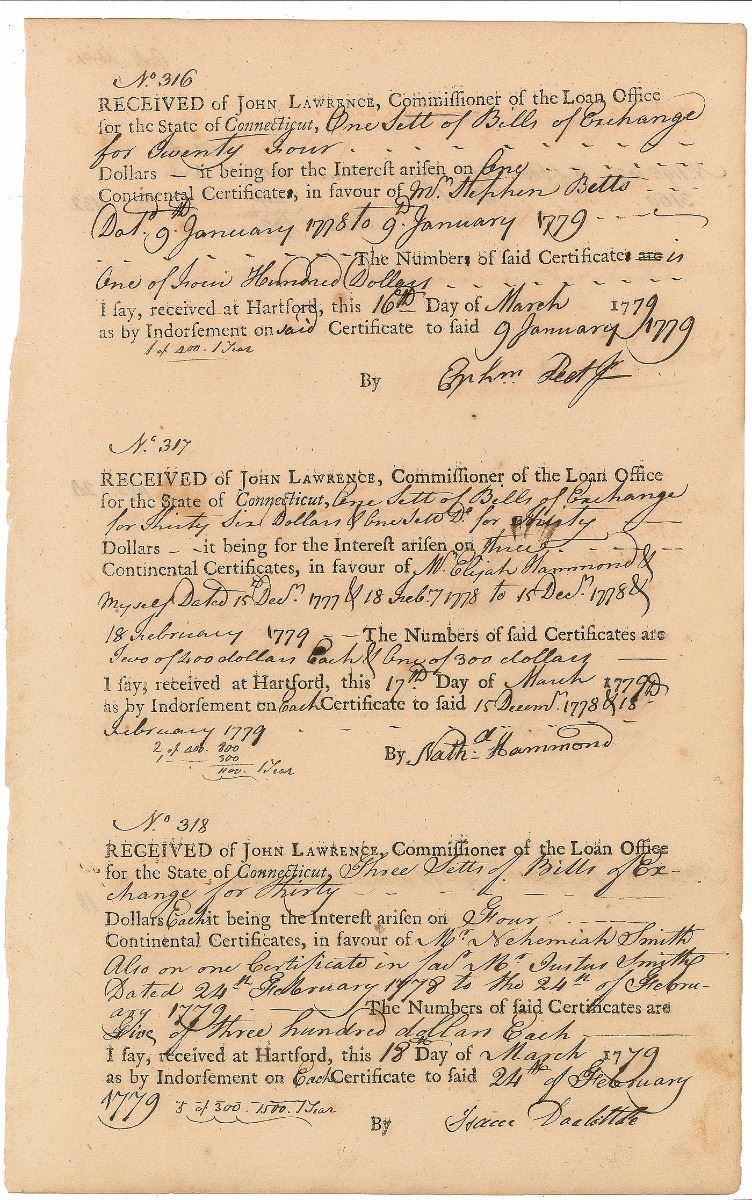 No. 316
RECEIVED of JOHN LAWRENCE, Commissioner of the Loan Office
for the State of Connecticut, One Sett of Bills of Exchange
for Twenty Four
Dollars — it being for the Interest arisen on One
Continental Certificates, in favour of Mr. Stephen Betts
Datd. 9th January 1778 to 9th January 1779
The Numbers of said Certificates are is
One of Four Hundred Dollars
I say, received at Hartford, this 16th Day of March 1779
as by Indorsement on said Certificate to said 9 January 1779
1 of 400. 1 Year
By Ephm
No. 317
RECEIVED of JOHN LAWRENCE, Commissioner of the Loan Office
for the State of Connecticut, One Sett of Bills of Exchange
for Thirty Six Dollars & One Sett Do. for Thirty
Dollars — it being for the Interest arisen on three
Continental Certificates, in favour of Mr. Elijah Hammond &
Myself Dated 15th Decr. 1777 & 18 Feby 1778 to 15 Decr. 1778 &
18 February 1779 — The Numbers of said Certificates are
Two of 400 dollars Each & One of 300 dollars
I say, received at Hartford, this 17th Day of March 1779
as by Indorsement on Each Certificate to said 15 Decemr. 1778 & 18th
February 1779
2 of 400. 800
1 300
1100. 1 Year
By Nathl. Hammond
No. 318
RECEIVED of JOHN LAWRENCE, Commissioner of the Loan Office
for the State of Connecticut, Three Setts of Bills of Ex-
change for Thirty
Dollars Each it being the Interest arisen on Four
Continental Certificates, in favour of Mr. Nehemiah Smith
Also on one Certificate in favr. Mr. Justus Smith
Dated 24th February 1778 to the 24th of Febru-
ary 1779 — The Numbers of said Certificates are
Five of three hundred dollars Each
I say, received at Hartford, this 18th Day of March 1779
as by Indorsement on Each Certificate to said 24th of February
1779 5 of 300. 1500. 1 Year
By Isaac Doolittle